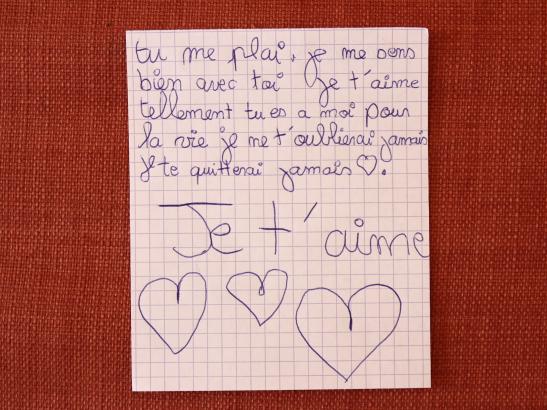 tu me plai, je me sens
bien avec toi je t'aime
tellement tu es a moi pour
la vie je ne t'oublierai jamais
Je te quitterai jamais ♡.
Je t'aime